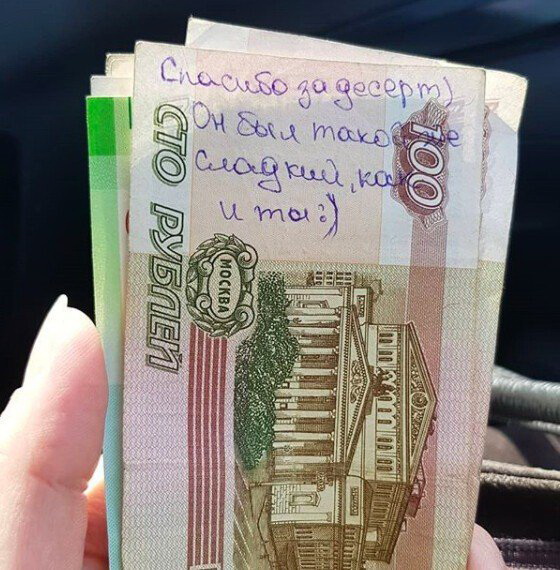 Спасибо за десерт)
Он был такой же
сладкий, как
и ты :)
СТО РУБЛЕЙ
100
МОСКВА